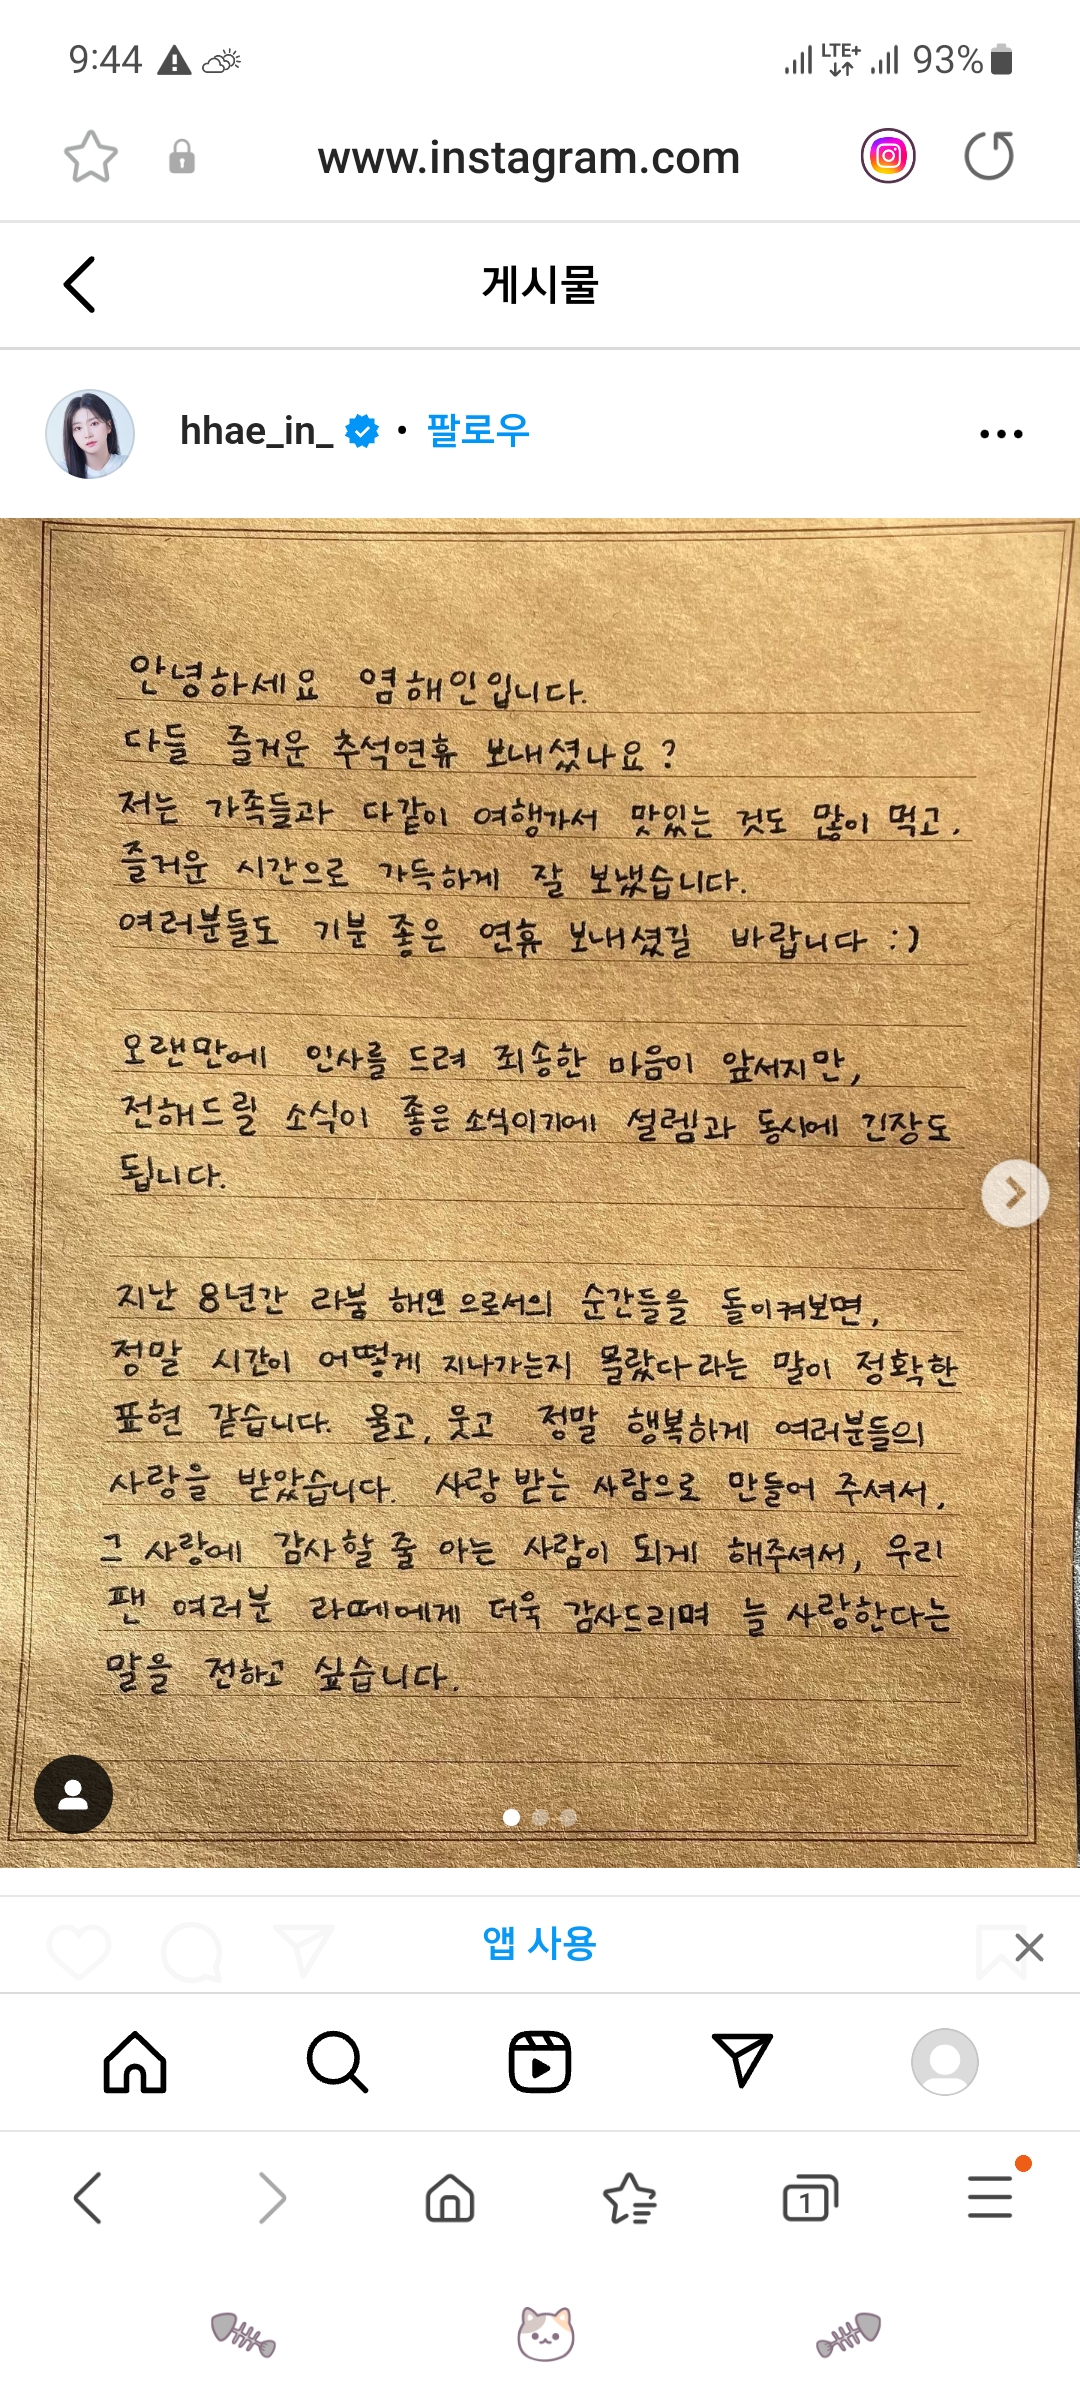 9:44 LTE+ 93%
www.instagram.com
게시물
hhae_in_ • 팔로우
안녕하세요 염해인입니다.
다들 즐거운 추석연휴 보내셨나요?
저는 가족들과 다같이 여행가서 맛있는 것도 많이 먹고,
즐거운 시간으로 가득하게 잘 보냈습니다.
여러분들도 기분 좋은 연휴 보내셨길 바랍니다 :)
오랜만에 인사를 드려 죄송한 마음이 앞서지만,
전해드릴 소식이 좋은 소식이기에 설렘과 동시에 긴장도
됩니다.
지난 8년간 라붐 해인으로서의 순간들을 돌이켜보면,
정말 시간이 어떻게 지나가는지 몰랐다라는 말이 정확한
표현 같습니다. 울고, 웃고 정말 행복하게 여러분들의
사랑을 받았습니다. 사랑 받는 사람으로 만들어 주셔서,
그 사랑에 감사할 줄 아는 사람이 되게 해주셔서, 우리
팬 여러분 라떼에게 더욱 감사드리며 늘 사랑한다는
말을 전하고 싶습니다.
앱 사용
1